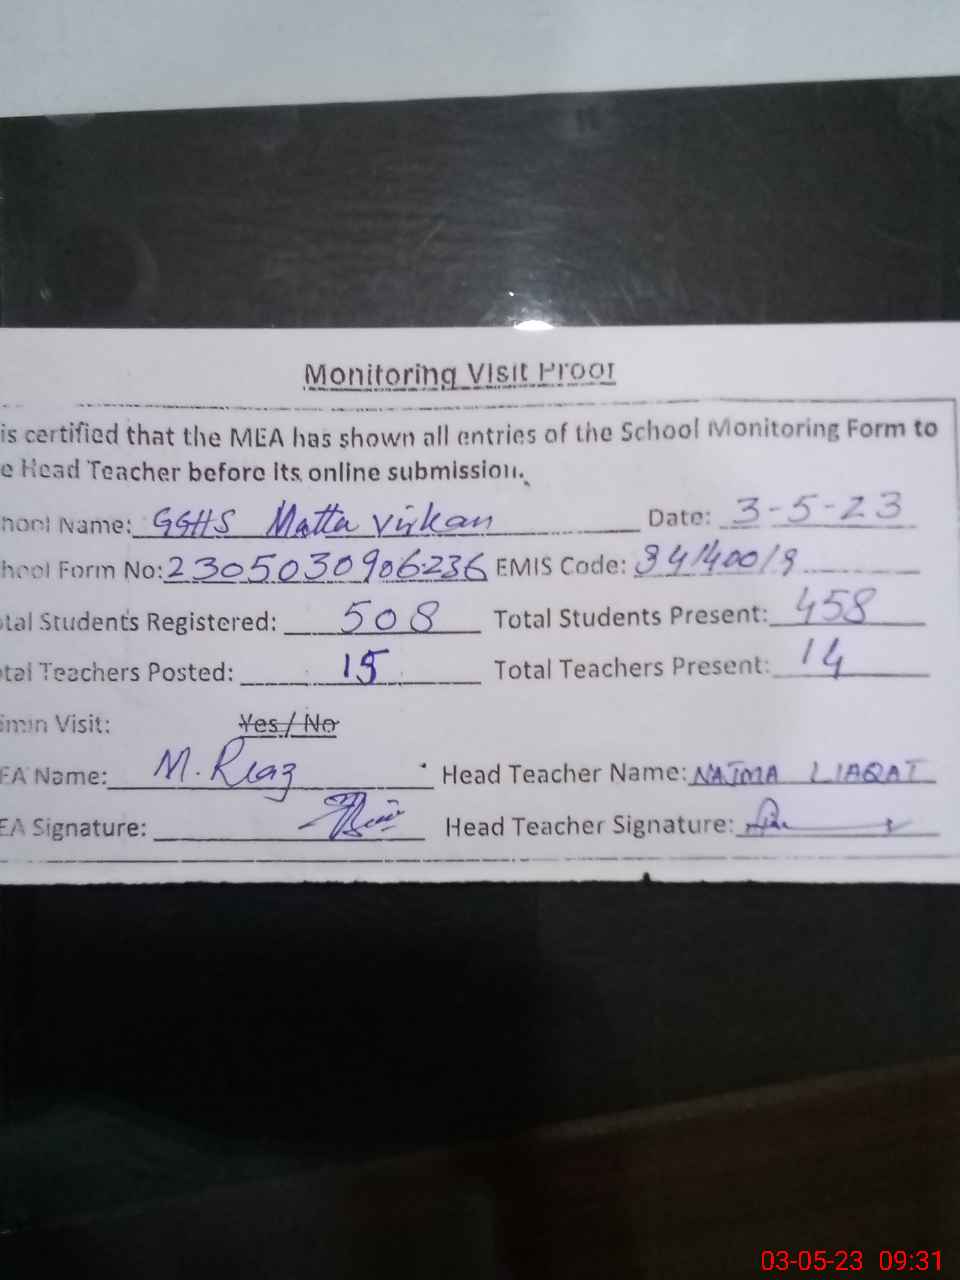 Monitoring Visit Proof
is certified that the MEA has shown all entries of the School Monitoring Form to
e Head Teacher before its online submission.
hool Name: GGHS Matta Virkan Date: 3-5-23
hool Form No: 2305030906236 EMIS Code: 34140019
tal Students Registered: 508 Total Students Present: 458
tal Teachers Posted: 15 Total Teachers Present: 14
min Visit: Yes / No
EA Name: M. Riaz Head Teacher Name: NAJMA LIAQAT
EA Signature: Head Teacher Signature:
03-05-23 09:31